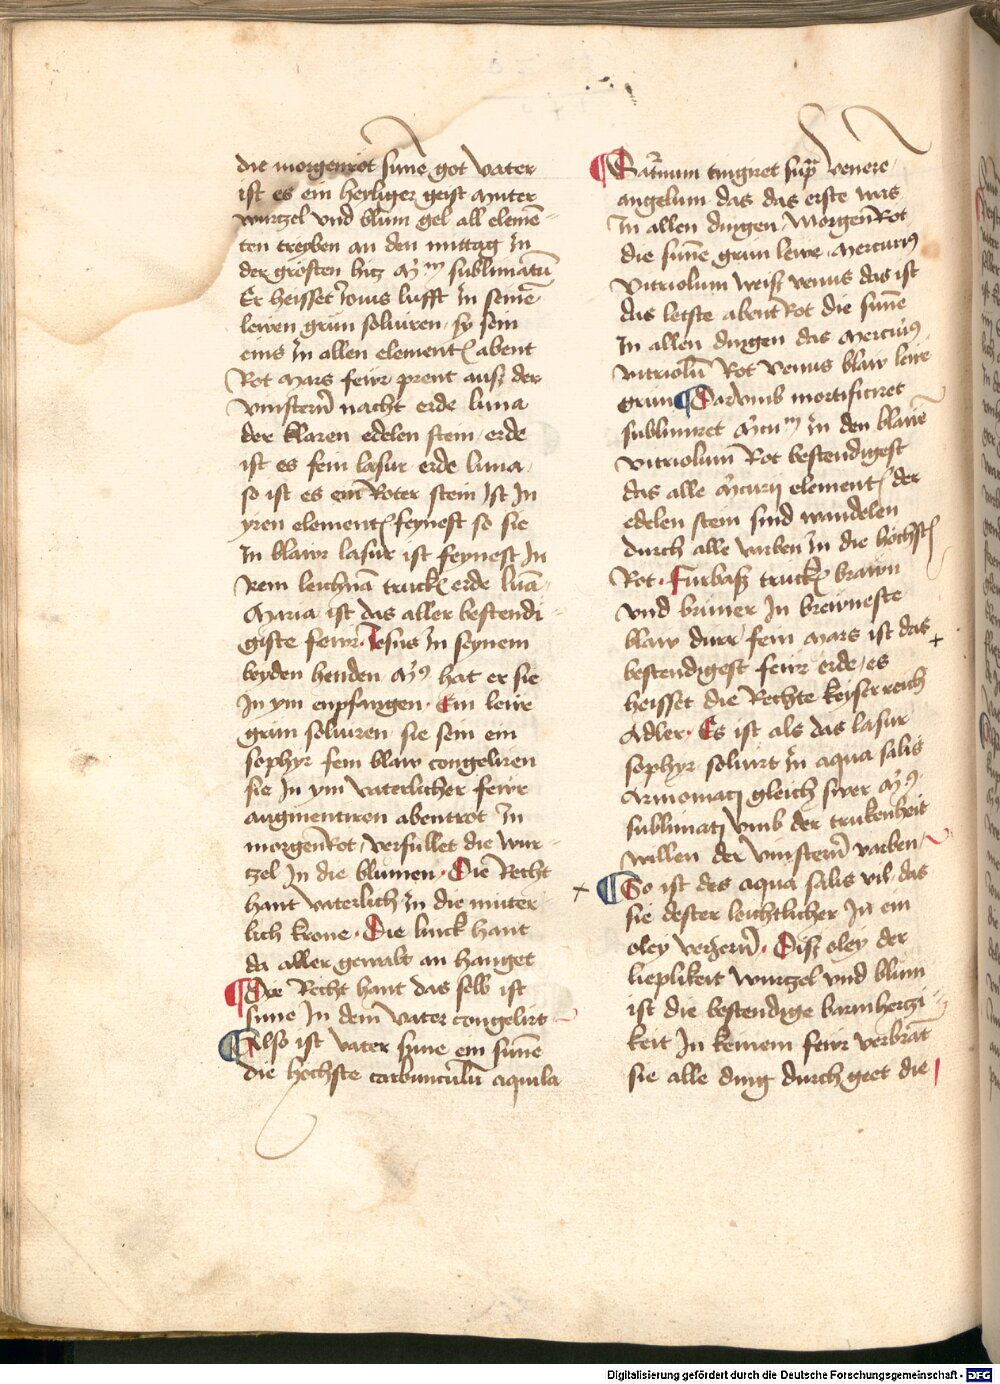 die morgenröt sune got vater
ist es ein heyliger geist muter
wurtzel vnd blům gel all elemē-
ten treyben an den mittag in
der grösten hitz m̄ sublimatū
Er heisset iouis lufft in seinē
lewen grün soluiren sy sein
eins in allen element abent
Rot mars fewr prent auſz der
vinsterñ nacht erde luna
der klaren edelen stein erde
ist es fein lasur erde luna
so ist es ein Roter stein Ist In
yren element feynest so sie
in blawr lasur ist feynest In
irem leichnā truck erde luā
Maria ist das aller bestendi
giste fewr. Jesus in seynem
beyden henden hat er sie
In ym enpfangen. Ein lewe
grün soluiren sie sein ein
sophyr fein blaw congeliren
sie In ym vaterlicher fewr
augmentiren abentrot in
morgenRot, verfullet die wur-
tzel In die blůmen. Die Recht
hant vaterlich in die muter
lich krone. Die linck hant
da aller gewalt an hanget
¶ Die Recht hant das selb ist
sune In dem vater congelirt
¶ Also ist vater sune ein sunē
die hochste carbunculū aquila
¶ Saturnum tingiret supra venere
angelum das das erste was
In allen dingen, MorgenRot
die sunē grün lewe Mercurius
vitriolum weiſz venus das ist
das letste abentRot die sunē
In allen dingen das Mercurius
vitriolū Rot venus blaw lewe
grün ¶ Darvmb mortificiret
sublimiret in den blawē
vitriolum Rot bestendigest
das alle mercurij element der
edelen stein sind wandelen
durch alle varben in die höchst
Rot. Furbaſz truck brawn
vnd bruner In brewneste
blaw durr fein Mars ist das
bestendigest fewr erde, es
heisset die Rechte keyserreich
Adler. Es ist als das lasur
sophyr soluirt in aqua salis
Armoniaci gleich swer
sublimati vmb der trukenheit
willen der vinsterñ varben
¶ So ist des aqua salis vil das
sie dester leichtlicher In ein
oley verzerñ. Diſz oley der
lieplikeit wurtzel vnd blům
ist die bestendige barmhertzi-
keit In keinem fewr verbrāt
sie alle ding durch geet die
Digitalisierung gefördert durch die Deutsche Forschungsgemeinschaft - DFG